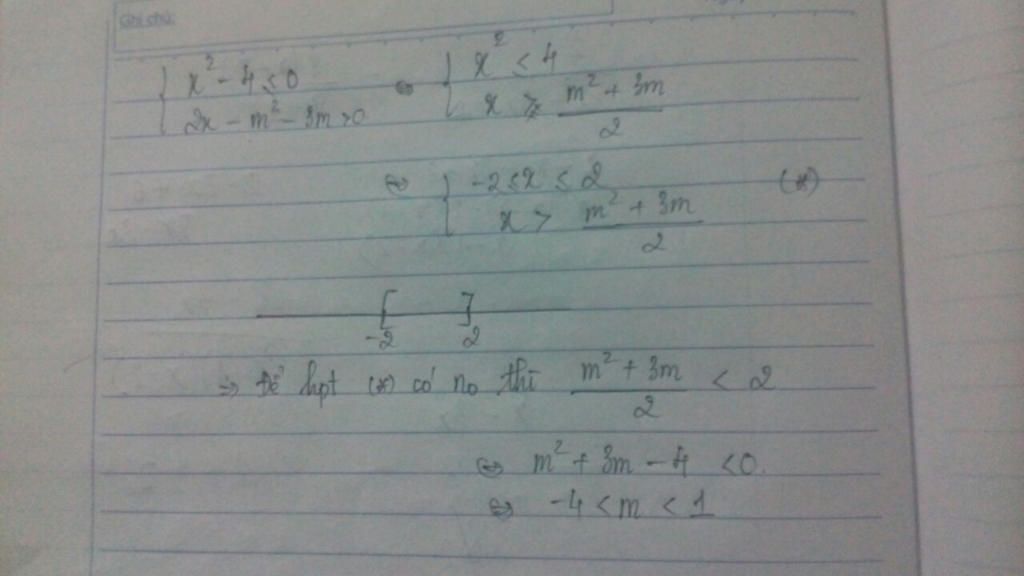 Ghi chú:
{ x² - 4 ≤ 0 ⇔ { x² ≤ 4
{ 2x - m² - 3m > 0 { x > (m² + 3m)/2
⇔ { -2 ≤ x ≤ 2 (*)
{ x > (m² + 3m)/2
[ ]
-2 2
⇒ Để hpt (*) có no thì (m² + 3m)/2 < 2
⇔ m² + 3m - 4 < 0.
⇔ -4 < m < 1